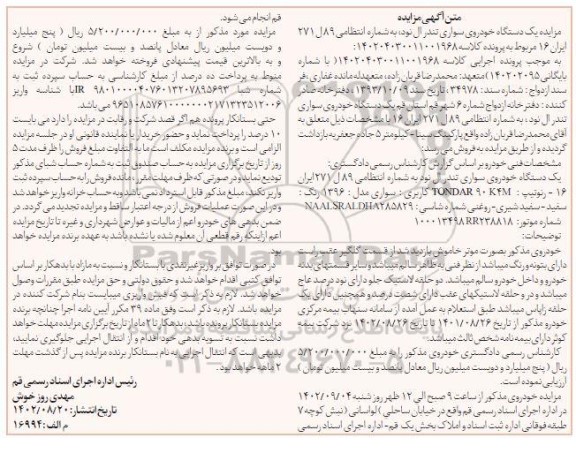 متن آگهی مزایده
مزایده یک دستگاه خودروی سواری تندر ال نود، به شماره انتظامی ۸۹ ل ۲۷۱
ایران ۱۶ مربوط به پرونده کلاسه ۱۴۰۲۰۴۰۳۰۰۱۱۰۰۱۹۶۸
به موجب پرونده اجرایی کلاسه ۱۴۰۲۰۴۰۳۰۰۱۱۰۰۱۹۶۸ ( با شماره
بایگانی ۱۴۰۲۰۲۰۹۵) متعهد: محمدرضا قربان زاده، متعهدله مائده غفاری، فر
سند ازدواج : شماره سند: ۳۴۹۷۸، تاریخ سند ۱۳۹۳/۱۰/۰۹، دفترخانه صادر
کننده : دفترخانه ازدواج شماره ۶ شهر قم استان قم یک دستگاه خودروی سواری
تندر ال نود ، به شماره انتظامی ۸۹ ل ۲۷۱ ایران ۱۶ با مشخصات ذیل متعلق به
آقای محمدرضا قربان زاده واقع پارکینگ سینا - کیلومتر ۵ جاده جعفریه بازداشت
گردیده و از طریق مزایده به فروش می رسد:
مشخصات فنی خودرو بر اساس گزارش کارشناس رسمی دادگستری:
یک دستگاه خودروی سواری تندر ال نود به شماره انتظامی ۸۹ ل ۲۷۱ ایران
۱۶ - رنوتیپ : TONDAR ۹۰ K۴M کاربری : سواری مدل : ۱۳۹۶ رنگ :
سفید - سفید شیری - روغنی شماره شاسی : NAALSRALDHA۲۸۵۸۲۹
شماره موتور: ۱۰۰۰۱۳۴۹۸RR۲۳۸۸۱۸
توضیحات:
خودروی مذکور بصورت موتر خاموش بازدید شد از قسمت گلگیر عقب راست
دارای بتونه و رنگ میباشد از نظر فنی به ظاهر سالم میباشد و سایر قسمتهای بدنه
خودرو و داخل خودرو سالم میباشد. دو حلقه لاستیک جلو دارای نود درصد عاج
میباشد و در و حلقه لاستیکهای عقب دارای شصت درصد و همچنین دارای یک
حلقه زاپاس میباشد طبق استعلام به عمل آمده از سامانه سنهاب بیمه مرکزی
خودرو مذکور از تاریخ ۱۴۰۱/۰۸/۲۶ تا تاریخ ۱۴۰۲/۰۸/۲۶ نزد شرکت بیمه
کوثر دارای بیمه نامه شخص ثالث میباشد.
کارشناس رسمی دادگستری خودروی مذکور را به مبلغ ۵/۲۰۰/۰۰۰/۰۰۰
ریال ( پنج میلیارد و دویست میلیون ریال معادل پانصد و بیست میلیون تومان )
ارزیابی نموده است.
مزایده خودروی مذکور از ساعت ۹ صبح الی ۱۲ ظهر روز شنبه ۱۴۰۲/۰۹/۰۴
در اداره اجرای اسناد رسمی قم واقع در خیابان ساحلی ( لواسانی ( نبش کوچه ۷
طبقه فوقانی اداره ثبت اسناد و املاک بخش یک قم - اداره اجرای اسناد رسمی
قم انجام می شود.
مزایده مورد مذکور از به مبلغ ۵/۲۰۰/۰۰۰/۰۰۰ ریال ( پنج میلیارد
و دویست میلیون ریال معادل پانصد و بیست میلیون تومان ) شروع
و به بالاترین قیمت پیشنهادی فروخته خواهد شد. شرکت در مزایده
منوط به پرداخت ده درصد از مبلغ کارشناسی به حساب سپرده ثبت به
شماره شبا IR ۹۸۰۱۰۰۰۰۴۰۷۶۰۱۳۲۰۷۸۹۵۶۹۳ با شناسه واریز
۹۶۵۱۰۸۵۷۶۱۰۰۰۰۰۰۰۲۱۷۱۳۲۳۵۱۲۰۰۶ می باشد.
حتی بستانکار پرونده هم اگر قصد شرکت و رقابت در مزایده را دارد می بایست
۱۰ درصد را پرداخت نماید و حضور خریدار یا نماینده قانونی او در جلسه مزایده
الزامی است و برنده مزایده مکلف است ما به التفاوت مبلغ فروش را ظرف مدت ۵
روز از تاریخ برگزاری مزایده به حساب صندوق ثبت به شماره حساب شبای مذکور
تودیع نماید و در صورتی که ظرف مهلت مقرر، مانده فروش را به حساب سپرده ثبت
واریز نکند، مبلغ مذکور قابل استرداد نمی باشد و به حساب خزانه واریز خواهد شد
و در این صورت عملیات فروش از درجه اعتبار ساقط و مزایده تجدید می گردد. در
ضمن بدهی های خودرو اعم از مالیات و عوارض شهرداری و غیره تا تاریخ مزایده
اعم از اینکه رقم قطعی آن معلوم شده یا نشده باشد به عهده برنده مزایده خواهد
بود
در صورت توافق بر واریز غیر نقدی با بستانکار و نسبت به مازاد با بدهکار بر اساس
توافق کتبی اقدام خواهد شد و حقوق دولتی و حق مزایده طبق مقررات وصول
خواهد شد. لازم به ذکر است که فیش واریزی میبایست بنام شرکت کننده در
مزایده باشد. لازم به ذکر است وفق ماده ۳۹ مکرر آیین نامه اجرا چنانچه برنده
مزایده بستانکار پرونده باشد، بدهکار تا ۲ ماه از تاریخ برگزاری مزایده مهلت خواهد
داشت نسبت به تسویه بدهی خود اقدام و از انتقال اجرایی جلوگیری نمایید،
بدیهی است که انتقال اجرائی به نام بستانکار برنده مزایده پس از گذشت مهلت
۲ ماهه خواهد بود.
رئیس اداره اجرای اسناد رسمی قم
مهدی روز خوش
تاریخ انتشار: ۱۴۰۲/۰۸/۲۰
م الف: ۱۶۹۹۴